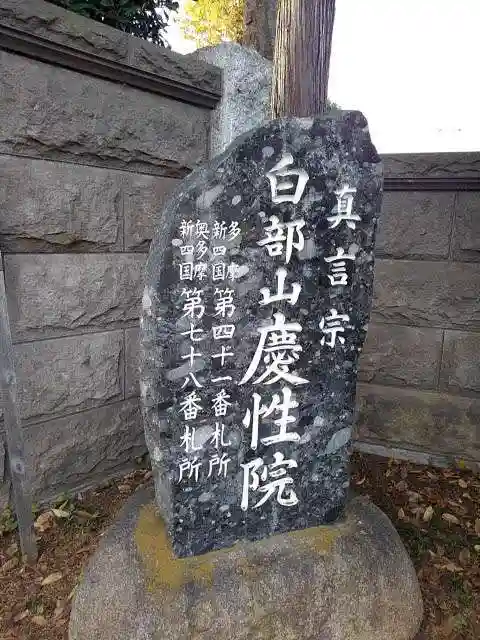 真言宗
白部山慶性院
多摩新四国 第四十一番札所
奥多摩新四国 第七十八番札所